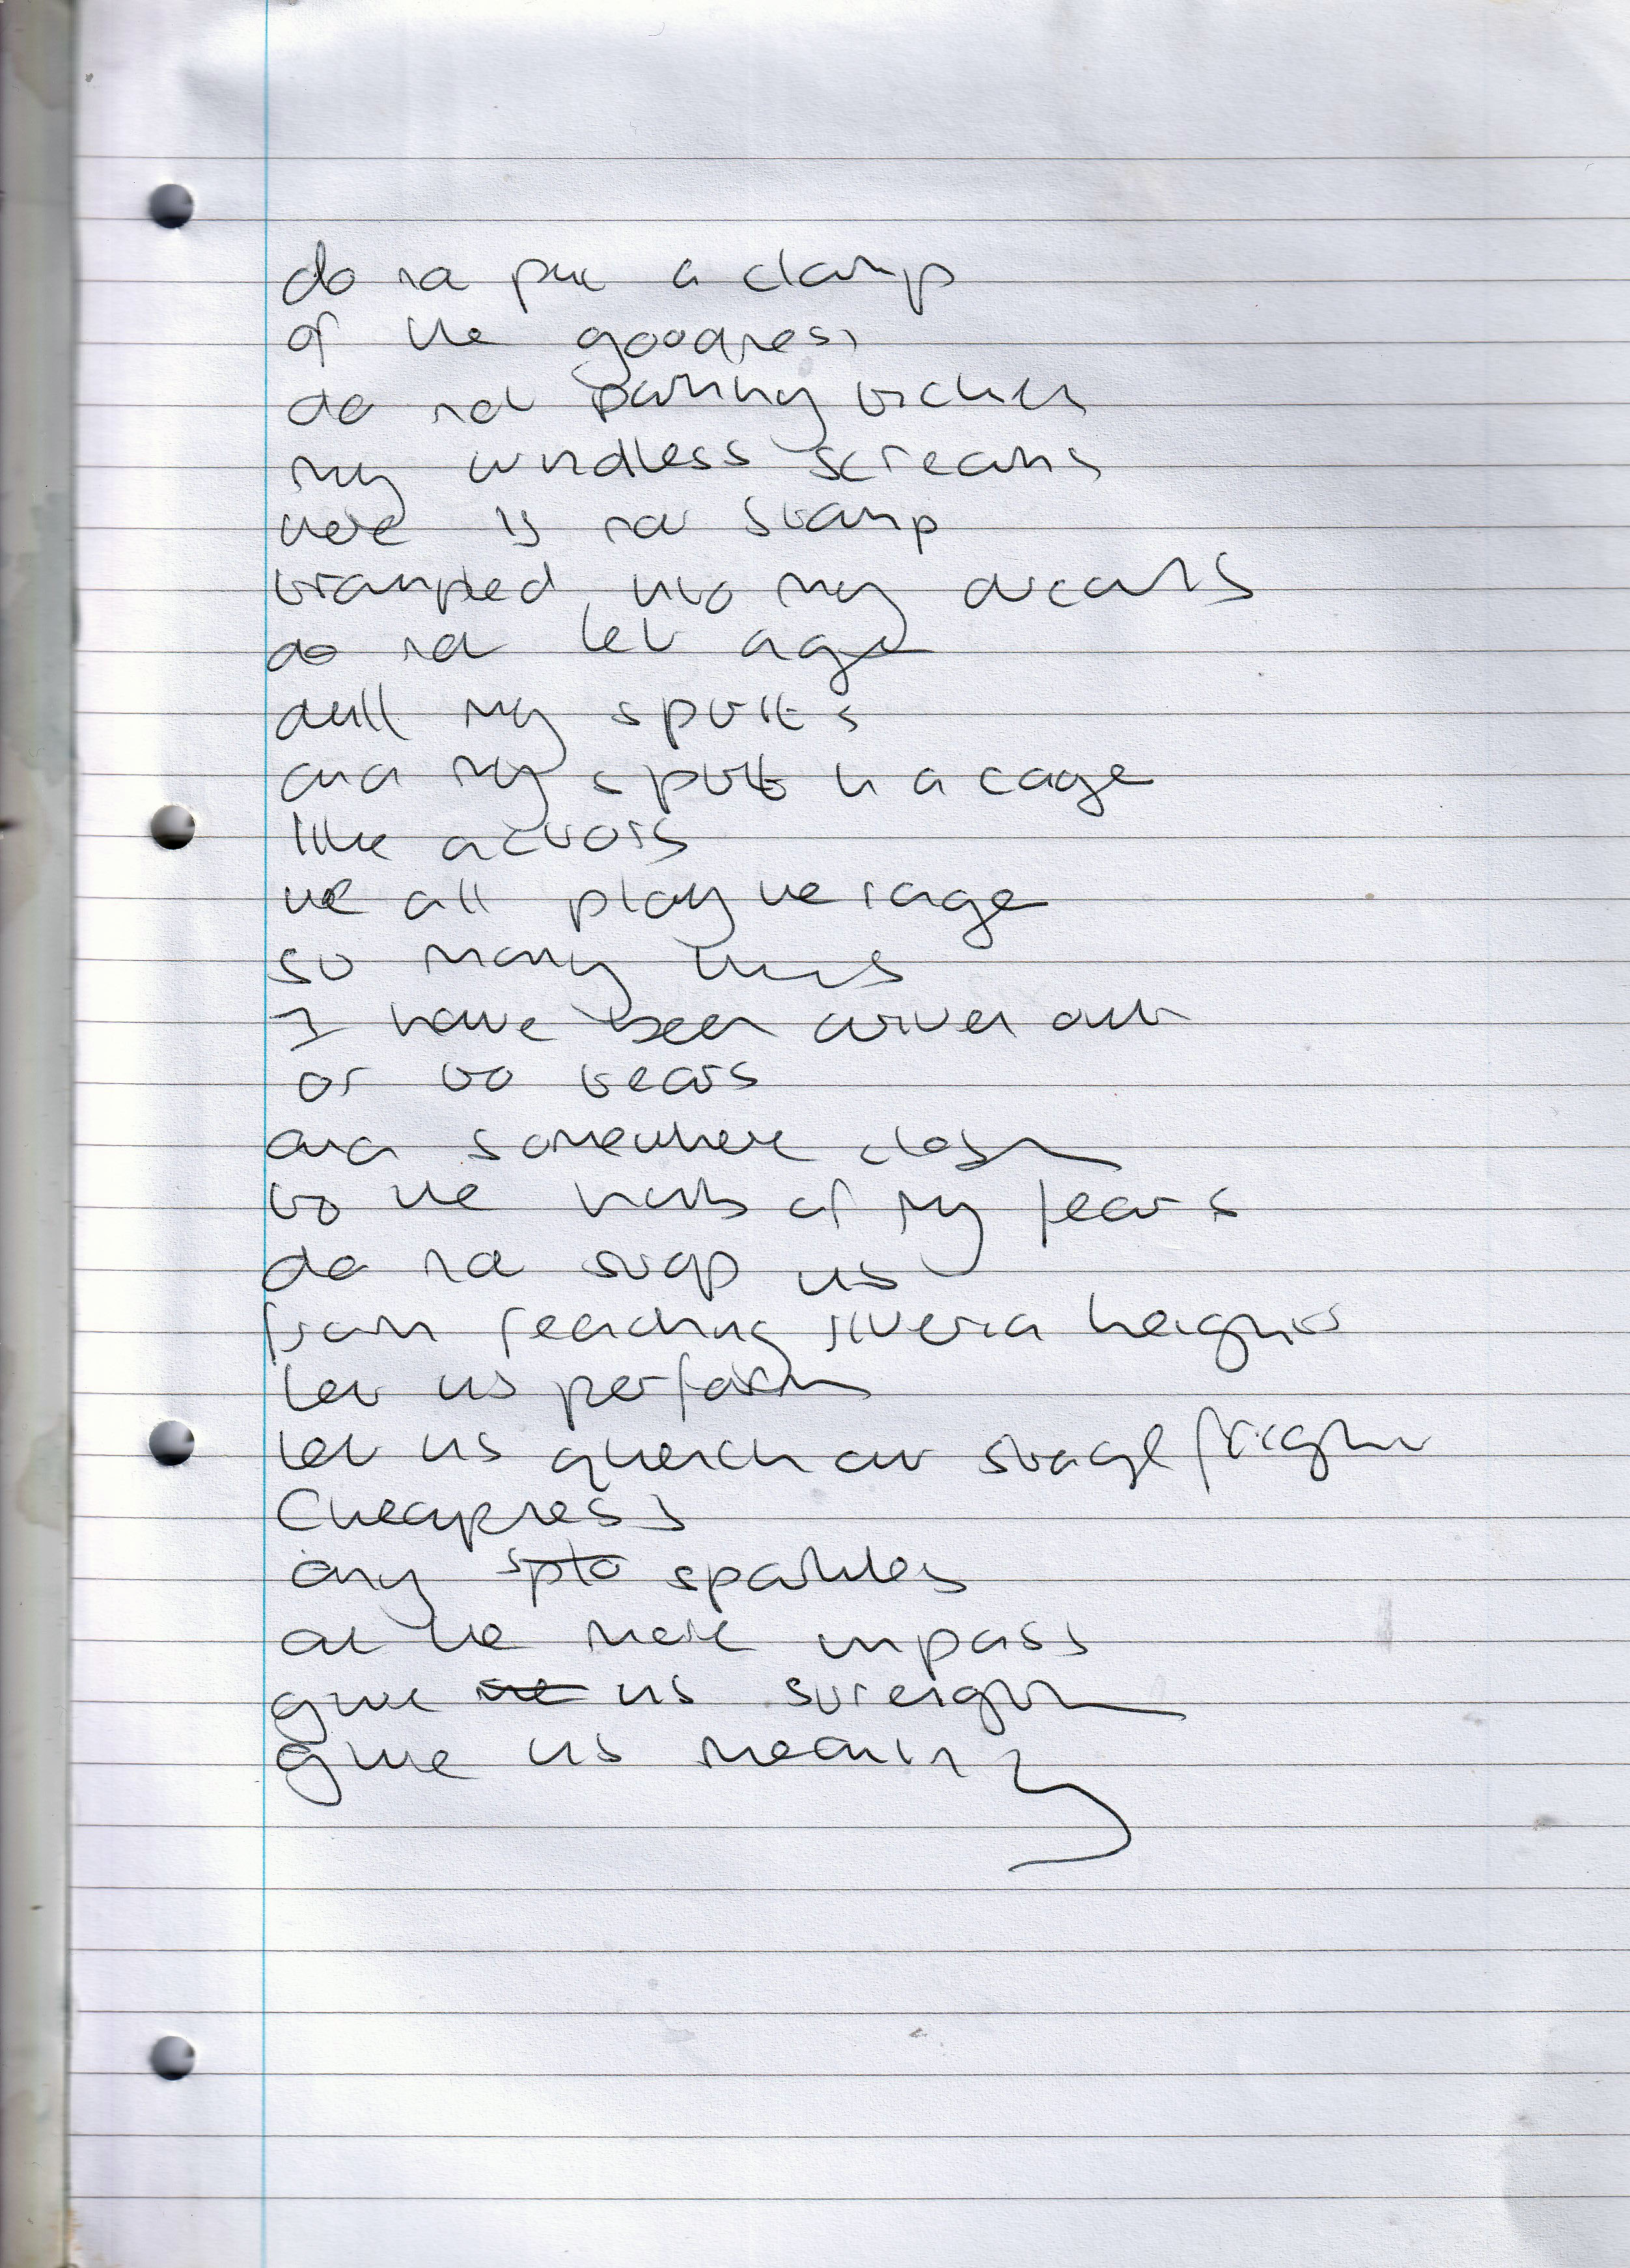 do not put a clamp
of the goodness
do not parking tickets
my windless screams
there is not stamp
trampled into my dreams
do not let age
dull my spirits
and my spirit in a cage
like actors
we all play the rage
so many times
I have been driven out
or to tears
and somewhere closer
to the of my fears
do not stop us
from reaching riviera heights
let us perform
let us quench our stage fright
Cheapness
any spto sparkles
at the mere impass
give me us
give us meaning